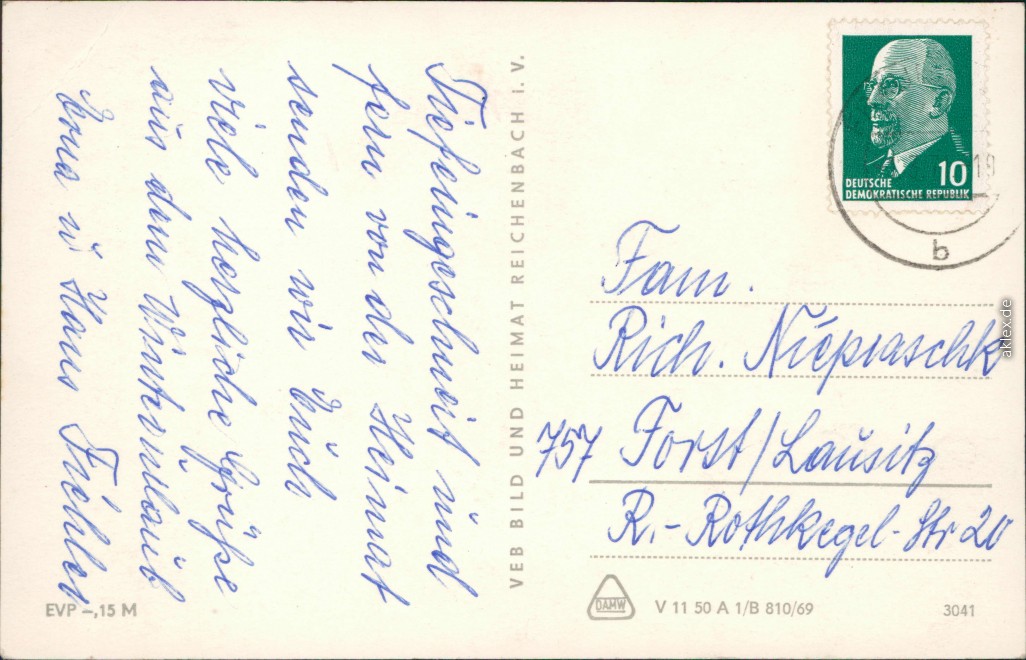 Tiefeingeschneit und
fern von der Heimat
senden wir Euch
viele herzliche Grüße
aus dem Winterurlaub
Erna u Hans Fichler
VEB BILD UND HEIMAT REICHENBACH I. V.
10
DEUTSCHE
DEMOKRATISCHE REPUBLIK
19
b
Fam.
Rich. Niepraschk
757 Forst/Lausitz
R.-Rothkegel-Str 20
EVP -,15 M
DAMW
V 11 50 A 1/B 810/69
3041
aklex.de